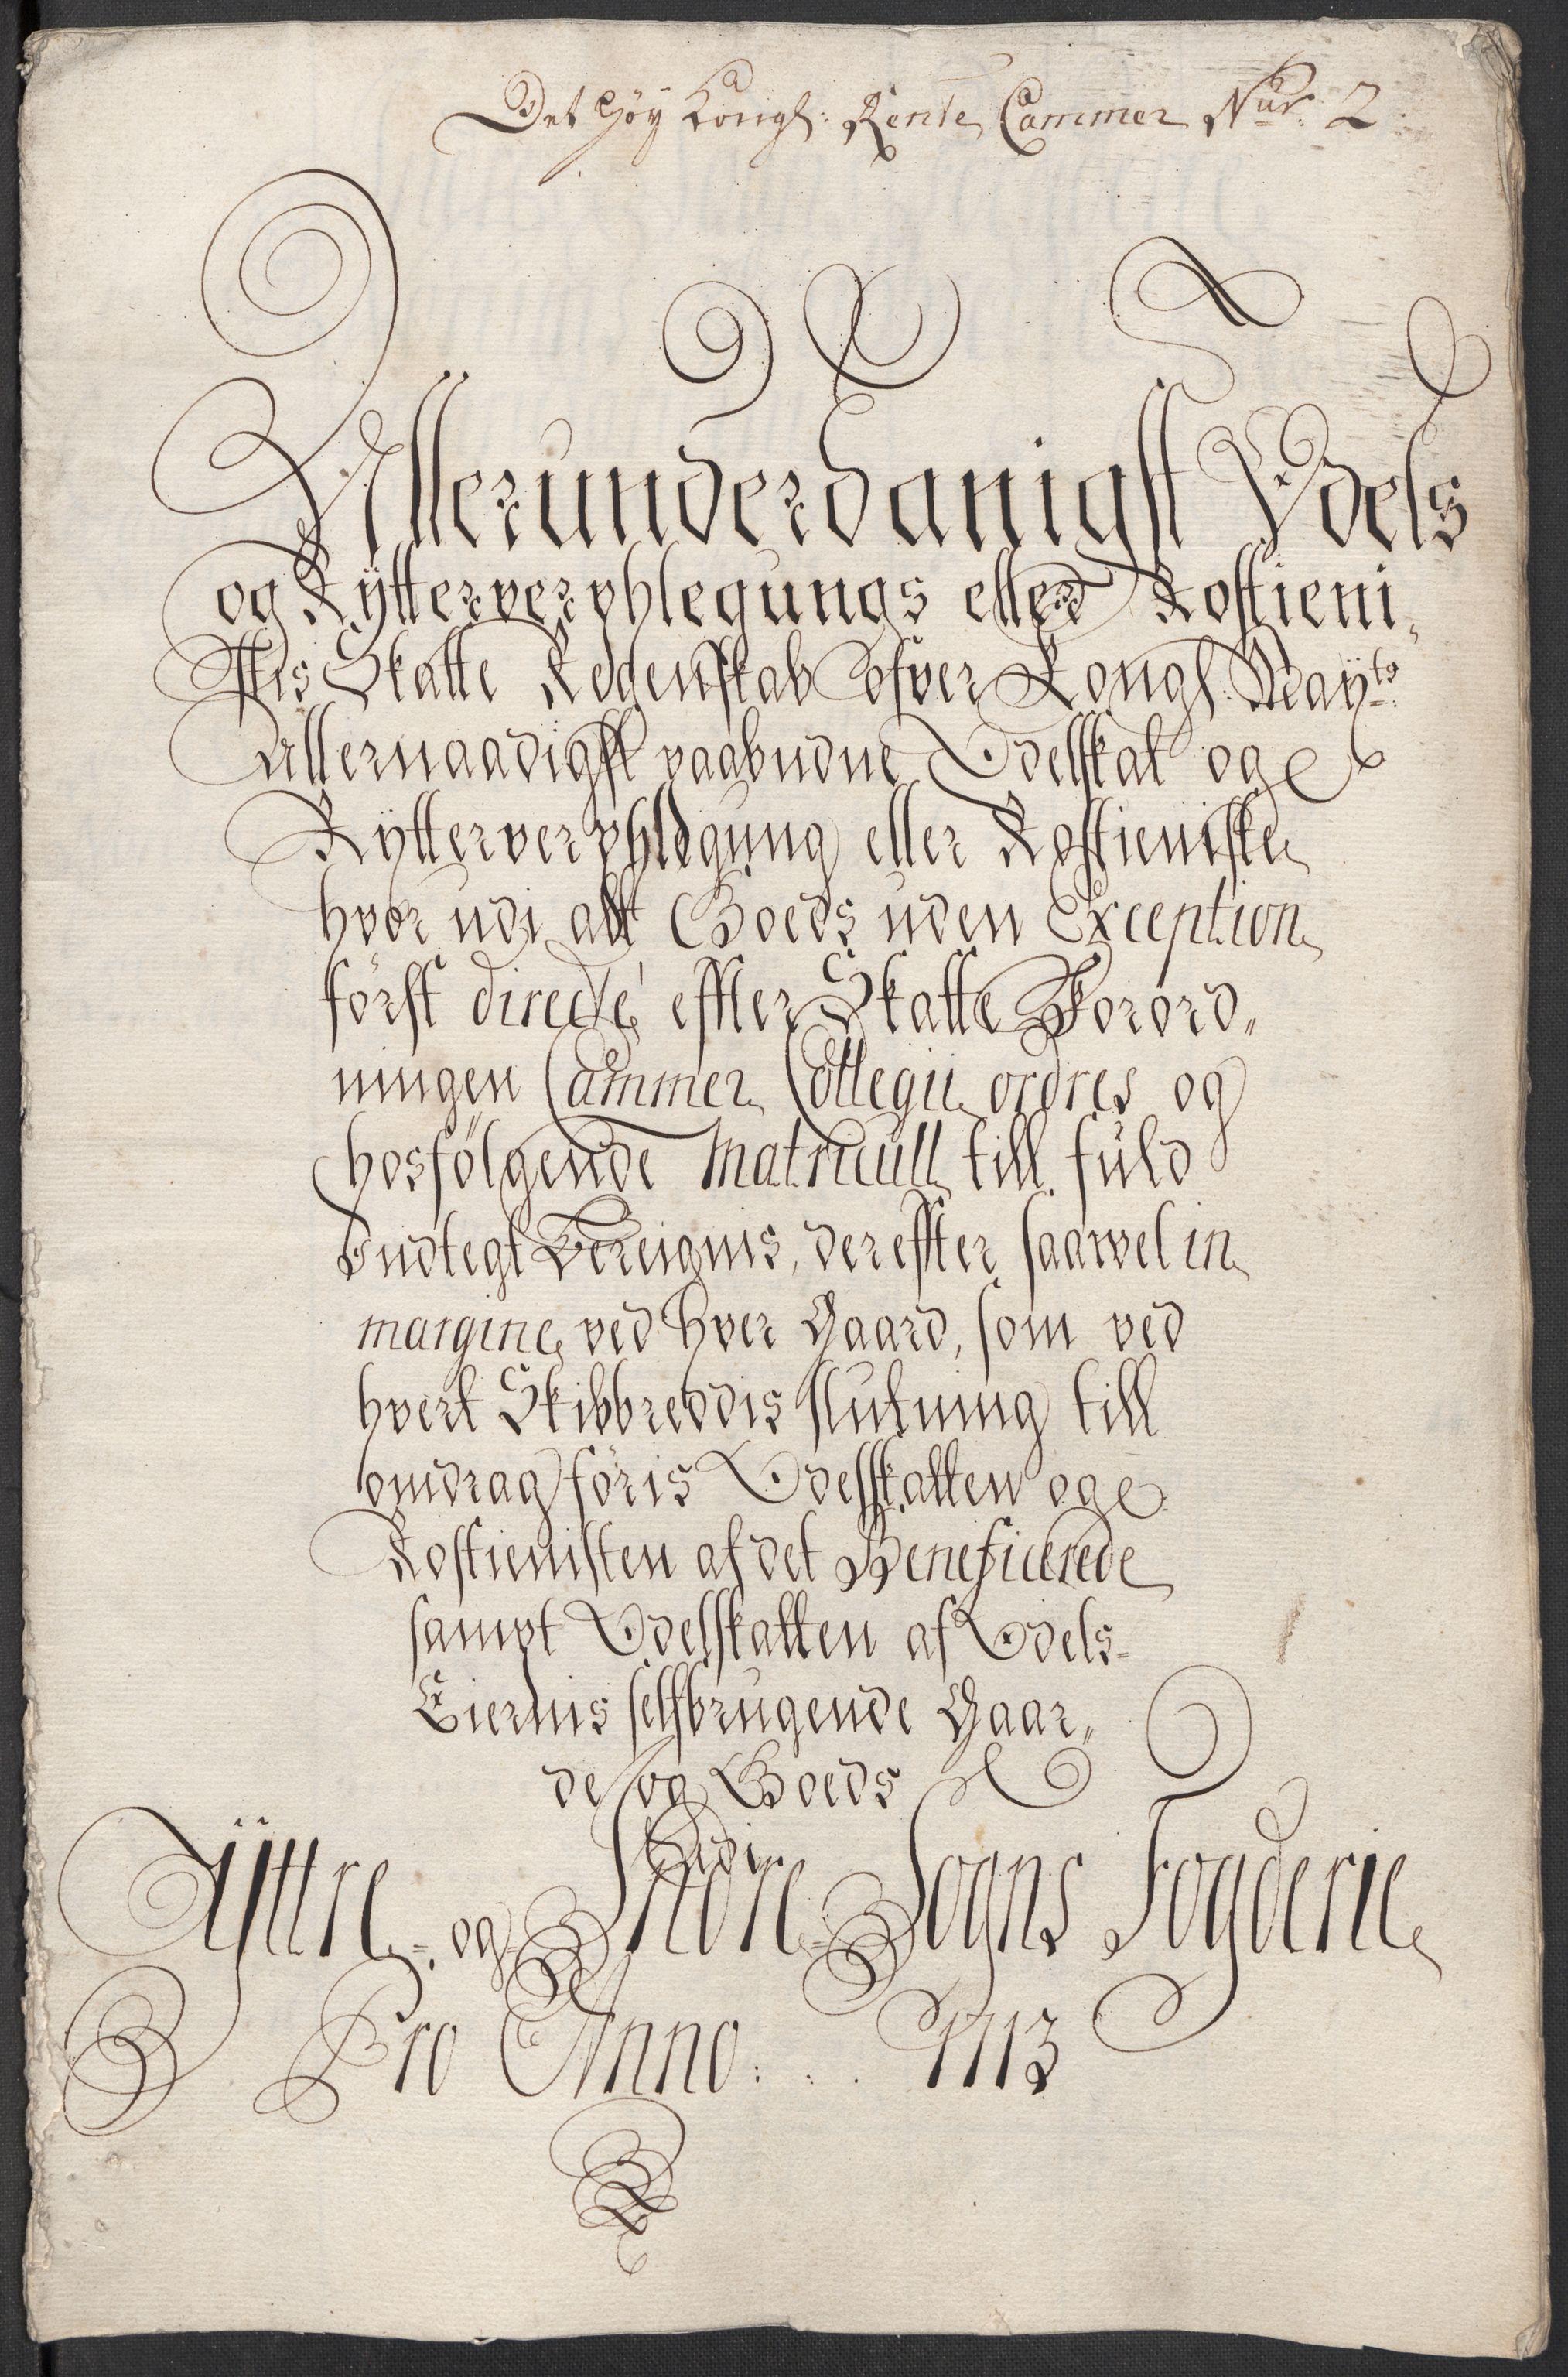 Det Höy Kongl: Rente Cammer Nur: 2
Allerunderdanigst Odels
og Rÿtterverphlegungs eller Rostieni,
stis Skatte Regenskab ofver Kongl: Maÿts
allernaadigst paabudne Odelskat og
Rÿtterverphlegung eller Rostieniste
hvor udi alt Goeds uden Exception
först directe effter Skatte Forord„
ningen Cammer Collegii ordres og
hosfölgende Matricull till fuld
Indtegt Bereignis, dereffter saawel in
margine ved hver Gaard, som ved
hvert Skibbreddis slutning till
omdrag föris Odelsskatten og
Rostienisten af det Beneficerede
sampt Odelskatten af Odels-
Eiernis selfbrugende Gaar„
de og Goeds
Udi
Ÿttre- og Indre- Sogns Fogderie
Pro Anno: 1713